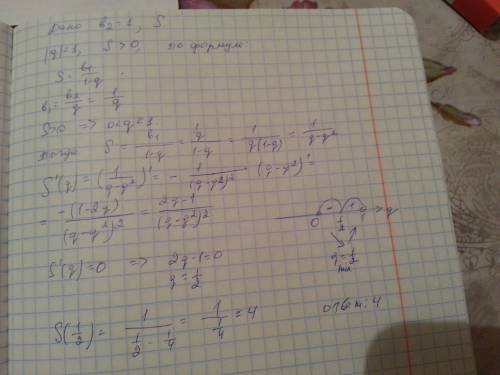 Дано b₂=1, S
|q|<1, S>0, по формуле
S = b₁/(1-q).
b₁ = b₂/q = 1/q
S>0 => 0<q<1
Тогда S = b₁/(1-q) = (1/q)/(1-q) = 1/(q(1-q)) = 1/(q-q²)
S'(q) = (1/(q-q²))' = - 1/(q-q²)² · (q-q²)' =
= -(1-2q)/(q-q²)² = (2q-1)/(q-q²)²
- + 
0 1/2 1 > q
S'(q)=0 => 2q-1=0
q = 1/2
q = 1/2
min
S(1/2) = 1/(1/2 - 1/4) = 1/(1/4) = 4
ответ: 4